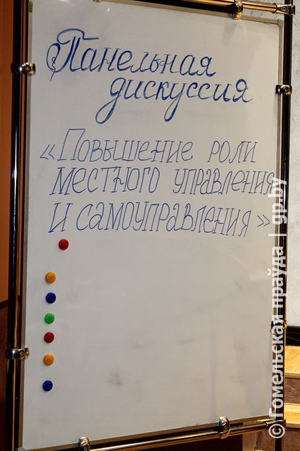 Панельная
дискуссия
«Повышение роли
местного управления
и самоуправления»
© Гомельская праўда | gp.by